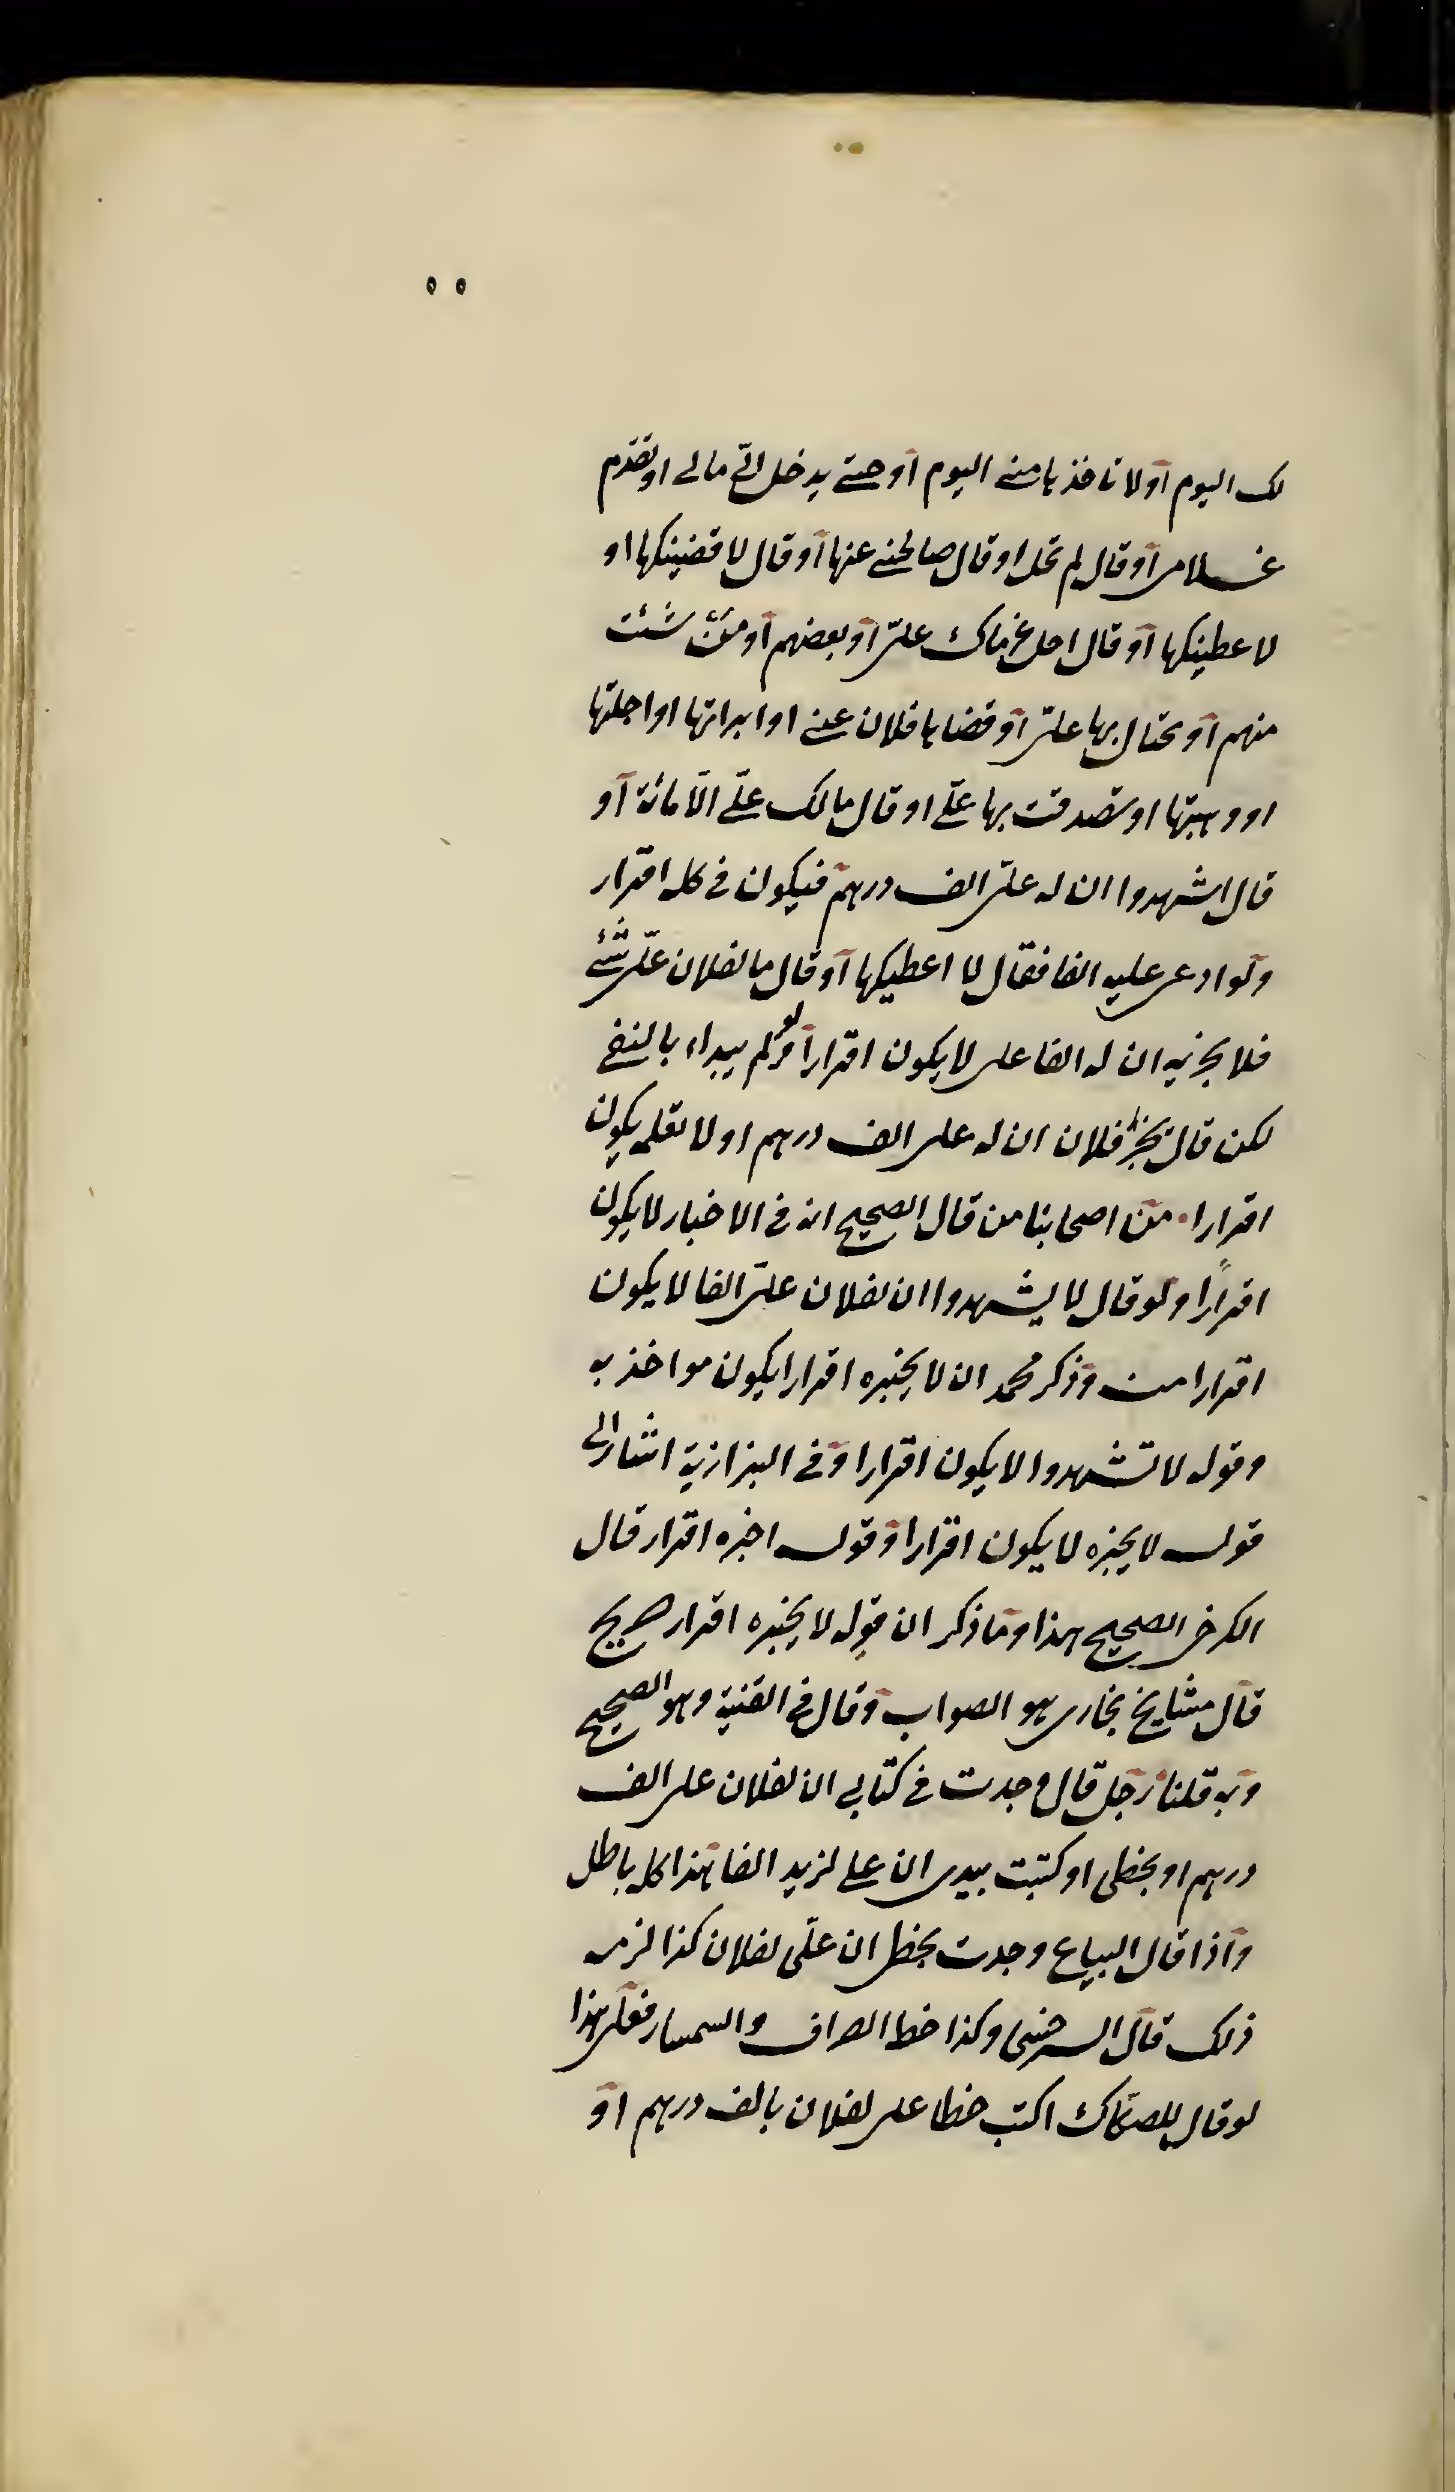 لك اليوم او لا تاخذها منى اليوم او حتى يدخل الىّ مالى او تقدم
غلامى او قال لم تحل او قال صالحنى عنها او قال لا قضينكها او
لا عطينكها او قال احل غرماك علىّ او بعضهم او من شئت
منهم او يحتال بها علىّ او قضاها فلان عنى او ابراتها او اجلتها
او وهبتها او تصدقت بها علىّ او قال مالك علىّ الا مائة او
قال اشهدوا ان له علىّ الف درهم فيكون فى كله اقرار
ولو ادعى عليه الفا فقال لا اعطيكها او قال ما لفلان علىّ شئ
فلا تخبريه ان له الفا على لا يكون اقرارا فلو لم يبداء بالنفى
لكن قال تخبر فلان ان له على الف درهم او لا تعلمه يكون
اقرارا من اصحابنا من قال الصحيح انه فى الاخبار لا يكون
اقرارًا ولو قال لا يشهدوا ان لفلان علىّ الفا لا يكون
اقرارا منه وذكر محمد ان لا يخبره اقرارا يكون مواخذ به
وقوله لا تشهدوا لا يكون اقرارا وفى البزازية اشار الى
قوله لا يخبره لا يكون اقرارا وقوله اخبره اقرار قال
الكرخى الصحيح هذا وما ذكر ان قوله لا يخبره اقرار صريح
قال مشايخ بخارى هو الصواب وقال فى القنية وهو الصحيح
وبه قلنا رجل قال وجدت فى كتابى ان لفلان على الف
درهم او بخطى او كتبت بيدى ان على لزيد الفا هذا كله باطل
واذا قال البياع وجدت بخطى ان علىّ لفلان كذا لزمه
ذلك قال السرخسى وكذا خط الصراف والسمسار فعلى هذا
لو قال للصكاك اكتب خطا على لفلان بالف درهم او